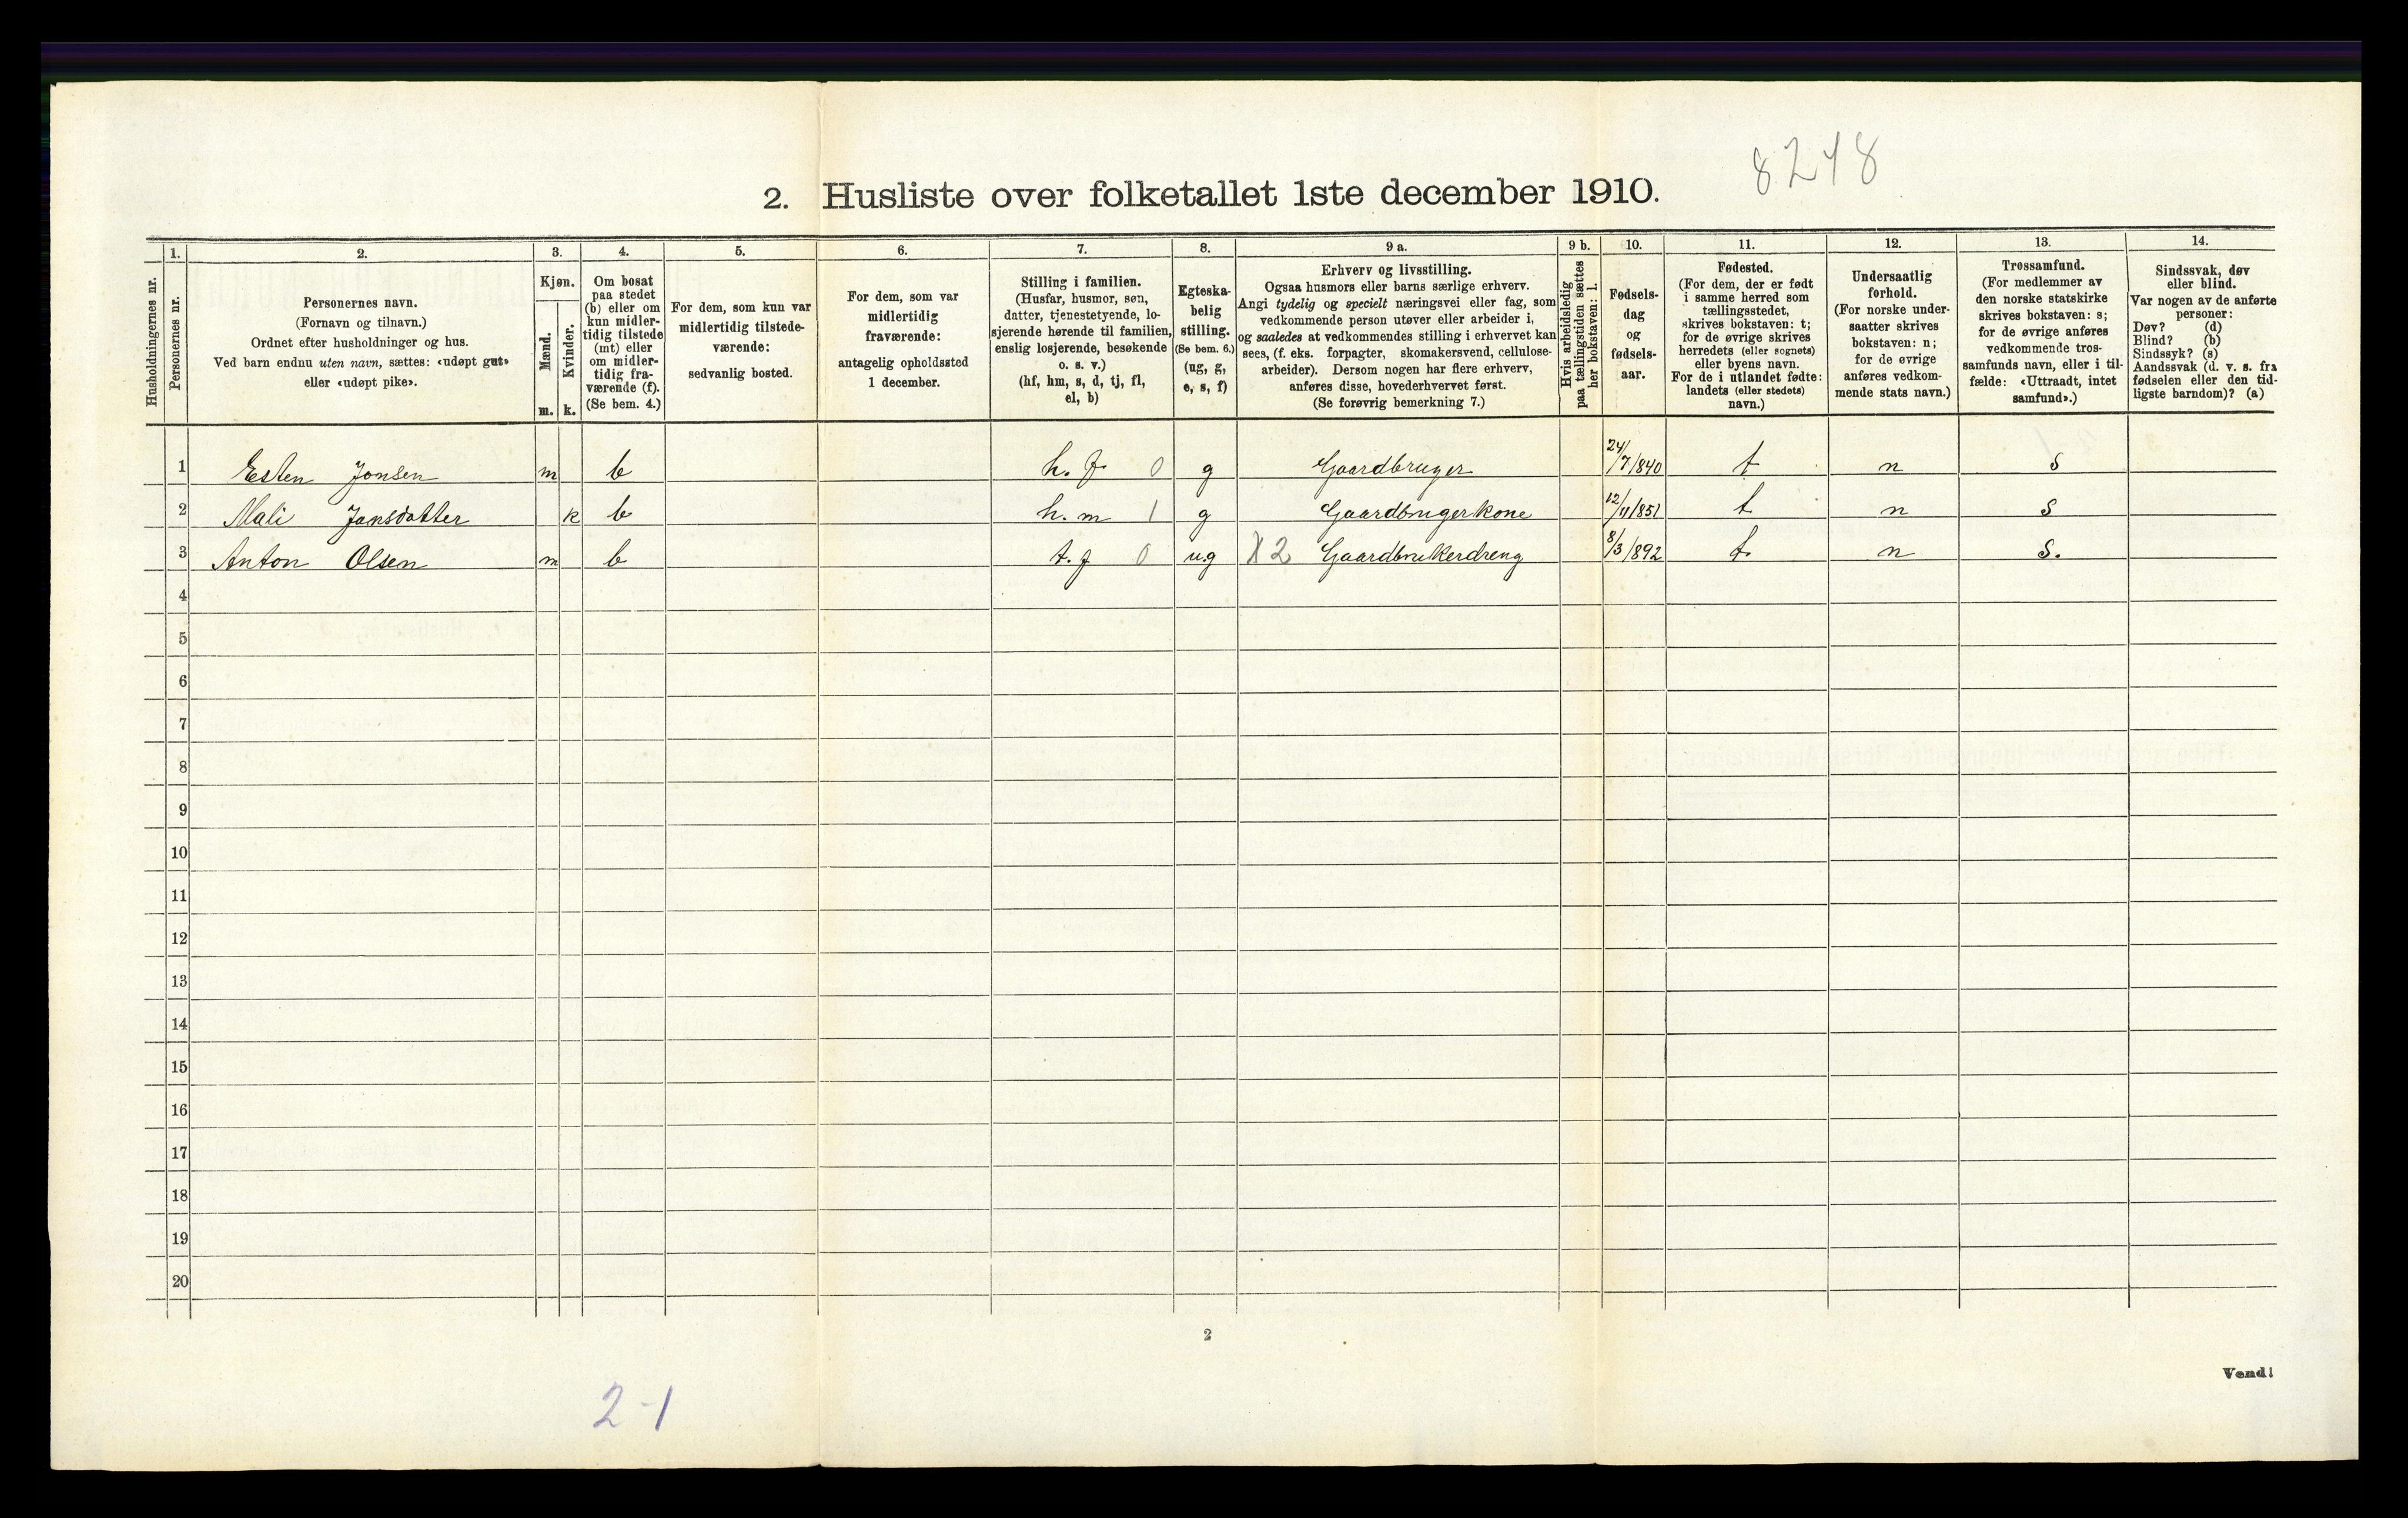 8248
2. Husliste over folketallet 1ste december 1910.
Husholdningernes nr.
1.
Personernes nr.
2.
Personernes navn.
(Fornavn og tilnavn.)
Ordnet efter husholdninger og hus.
Ved barn endnu uten navn, sættes: «udøpt gut»
eller «udøpt pike».
3.
Kjøn.
Mænd.
m.
Kvinder.
k.
4.
Om bosat
paa stedet
(b) eller om
kun midler-
tidig tilstede
(mt) eller
om midler-
tidig fra-
værende (f).
(Se bem. 4.)
5.
For dem, som kun var
midlertidig tilstede-
værende:
sedvanlig bosted.
6.
For dem, som var
midlertidig
fraværende:
antagelig opholdssted
1 december.
7.
Stilling i familien.
(Husfar, husmor, søn,
datter, tjenestetyende, lo-
sjerende hørende til familien,
enslig losjerende, besøkende
o. s. v.)
(hf, hm, s, d, tj, fl,
el, b)
8.
Egteska-
belig
stilling.
(Se bem. 6.)
(ug, g,
e, s, f)
9 a.
Erhverv og livsstilling.
Ogsaa husmors eller barns særlige erhverv.
Angi tydelig og specielt næringsvei eller fag, som
vedkommende person utøver eller arbeider i,
og saaledes at vedkommendes stilling i erhvervet kan
sees, (f. eks. forpagter, skomakersvend, cellulose-
arbeider). Dersom nogen har flere erhverv,
anføres disse, hovederhvervet først.
(Se forøvrig bemerkning 7.)
9 b.
Hvis arbeidsledig
paa tællingstiden sættes
her bokstaven: l.
10.
Fødsels-
dag
og
fødsels-
aar.
11.
Fødested.
(For dem, der er født
i samme herred som
tællingsstedet,
skrives bokstaven: t;
for de øvrige skrives
herredets (eller sognets)
eller byens navn.
For de i utlandet fødte:
landets (eller stedets)
navn.)
12.
Undersaatlig
forhold.
(For norske under-
saatter skrives
bokstaven: n;
for de øvrige
anføres vedkom-
mende stats navn.)
13.
Trossamfund.
(For medlemmer av
den norske statskirke
skrives bokstaven: s;
for de øvrige anføres
vedkommende tros-
samfunds navn, eller i til-
fælde: «Uttraadt, intet
samfund».)
14.
Sindssvak, døv
eller blind.
Var nogen av de anførte
personer:
Døv? (d)
Blind? (b)
Sindssyk? (s)
Aandssvak (d. v. s. fra
fødselen eller den tid-
ligste barndom)? (a)
1 Esten Jonsen m b h. f 0 g Gaardbruger 24/7/840 t n s
2 Mali Jonsdatter k b h. m 1 g Gaardbrugerkone 12/11/851 t n s
3 Anton Olsen m b t. j 0 ug X2 Gaardbrukerdreng 8/3/892 t. n s.
4
5
6
7
8
9
10
11
12
13
14
15
16
17
18
19
20
2
Vend!
2-1